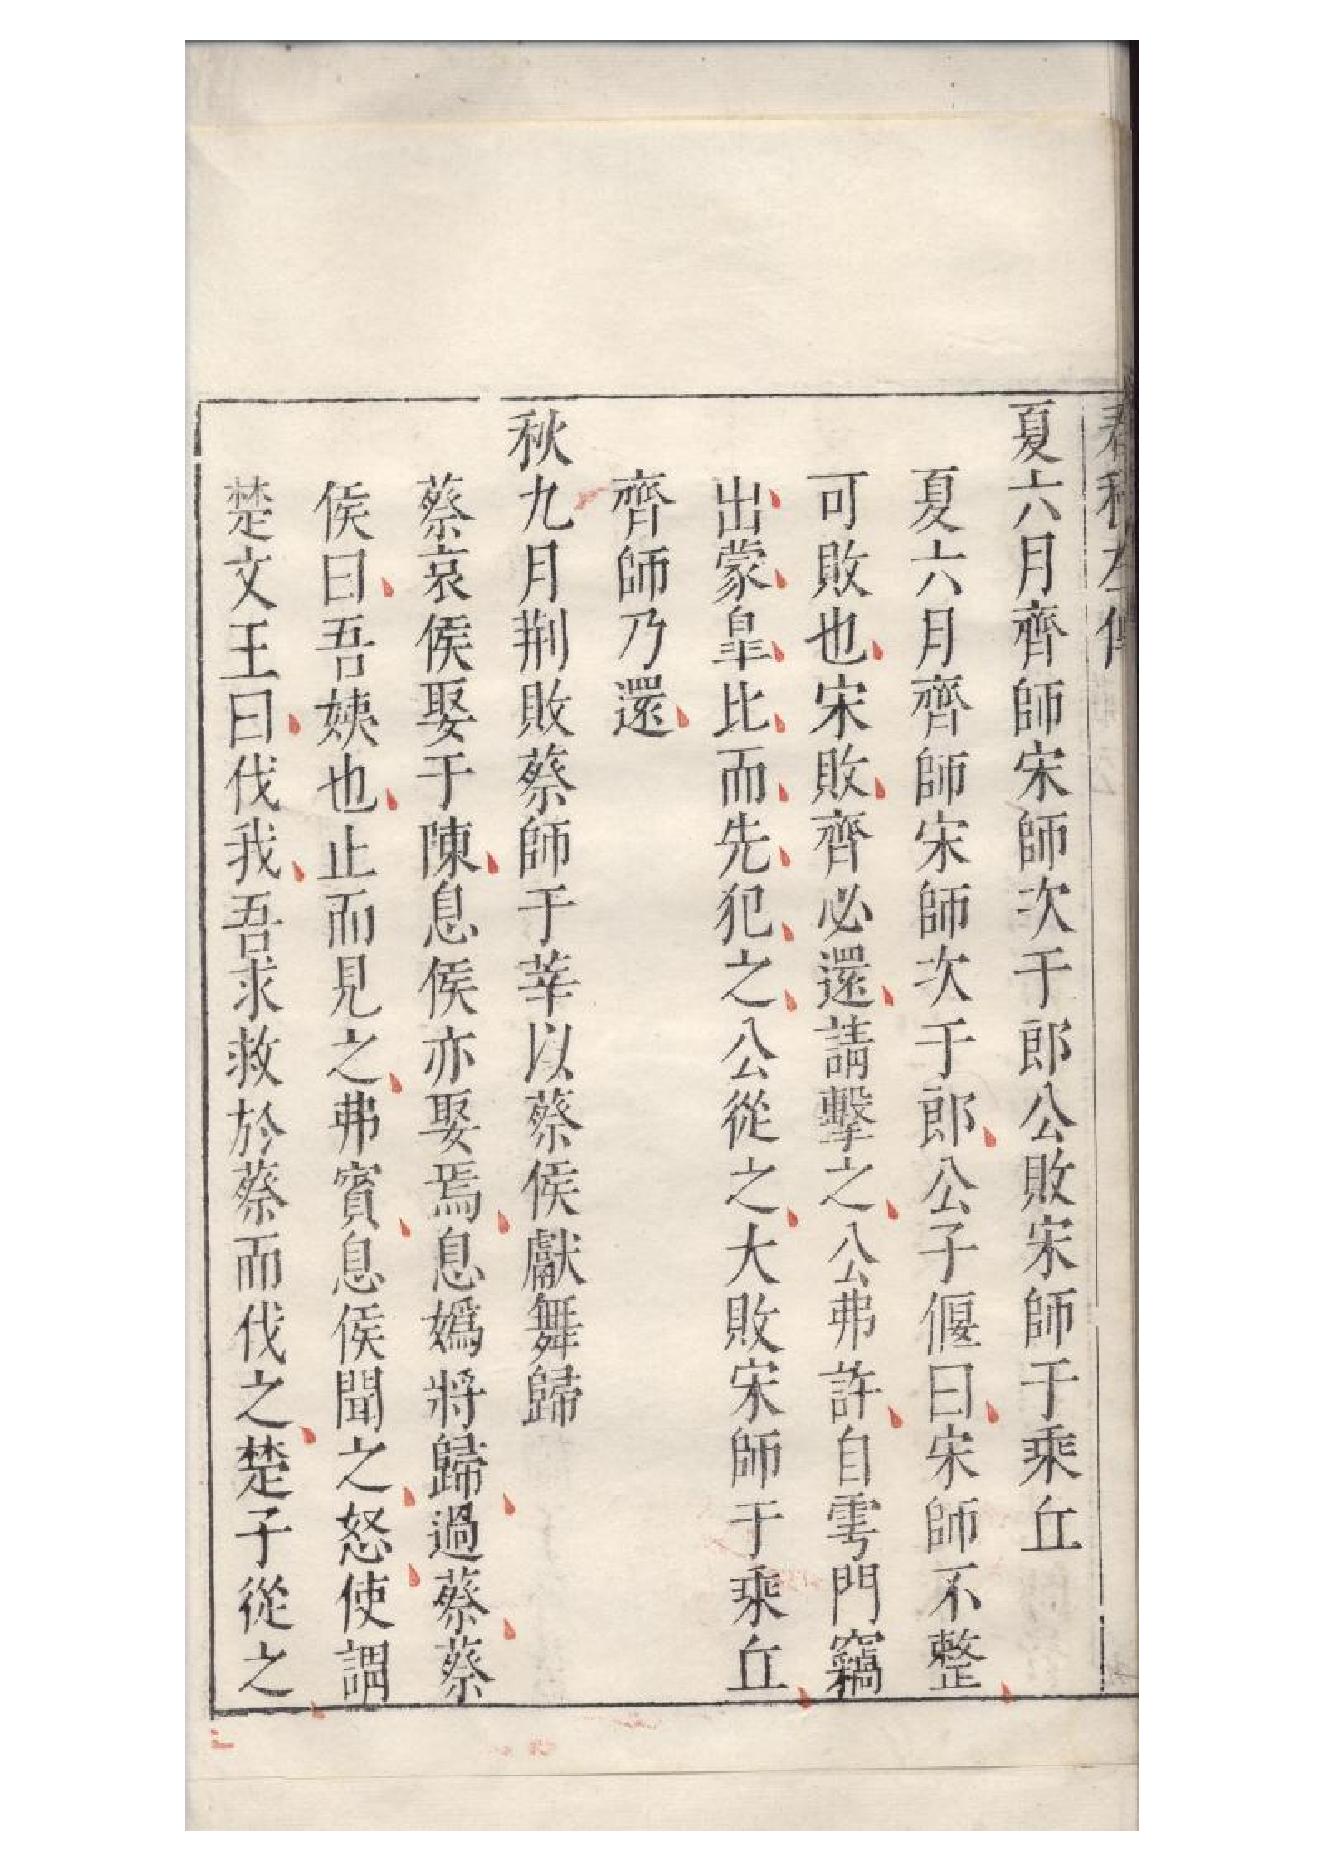 春秋左傳
夏六月齊師宋師次于郎公敗宋師于乘丘
夏六月齊師宋師次于郎公子偃曰宋師不整
可敗也宋敗齊必還請擊之公弗許自雩門竊
出蒙皐比而先犯之公從之大敗宋師于乘丘
齊師乃還
秋九月荆敗蔡師于莘以蔡侯獻舞歸
蔡哀侯娶于陳息侯亦娶焉息嬀將歸過蔡蔡
侯曰吾姨也止而見之弗賓息侯聞之怒使謂
楚文王曰伐我吾求救於蔡而伐之楚子從之